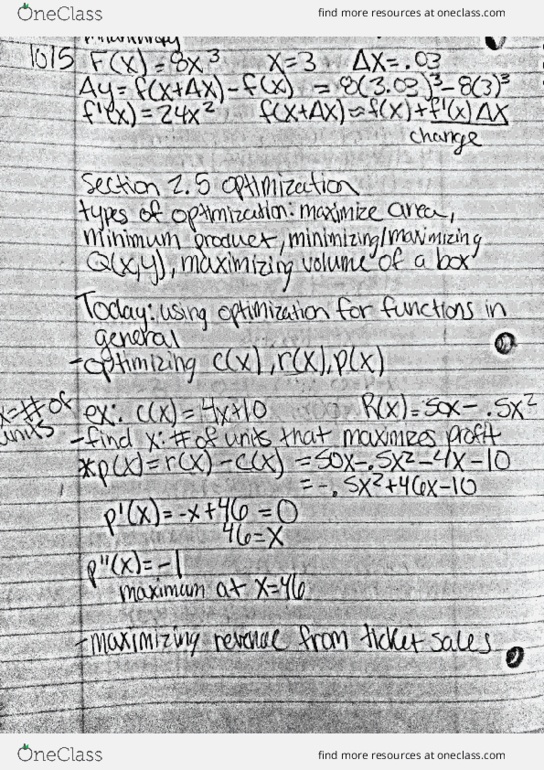 OneClass
find more resources at oneclass.com
10/5 F(x) = 8x³ x=3 Δx=.03
Δy= f(x+Δx)-f(x) = 8(3.03)³-8(3)³
f'(x) = 24x² f(x+Δx)≈f(x)+f'(x)Δx
change
Section 2.5 optimization
types of optimization: maximize area,
minimum product, minimizing/maximizing
Q(x,y), maximizing volume of a box
Today: using optimization for functions in
general
-optimizing c(x), r(x), p(x)
x=# of
units
ex: c(x) = 4x+10 R(x)=50x-.5x²
-find x: # of units that maximizes profit
*p(x)=r(x)-c(x) =50x-.5x²-4x-10
=-.5x²+46x-10
p'(x)=-x+46=0
46=x
p"(x)=-1
maximum at x=46
-maximizing revenue from ticket sales
OneClass
find more resources at oneclass.com